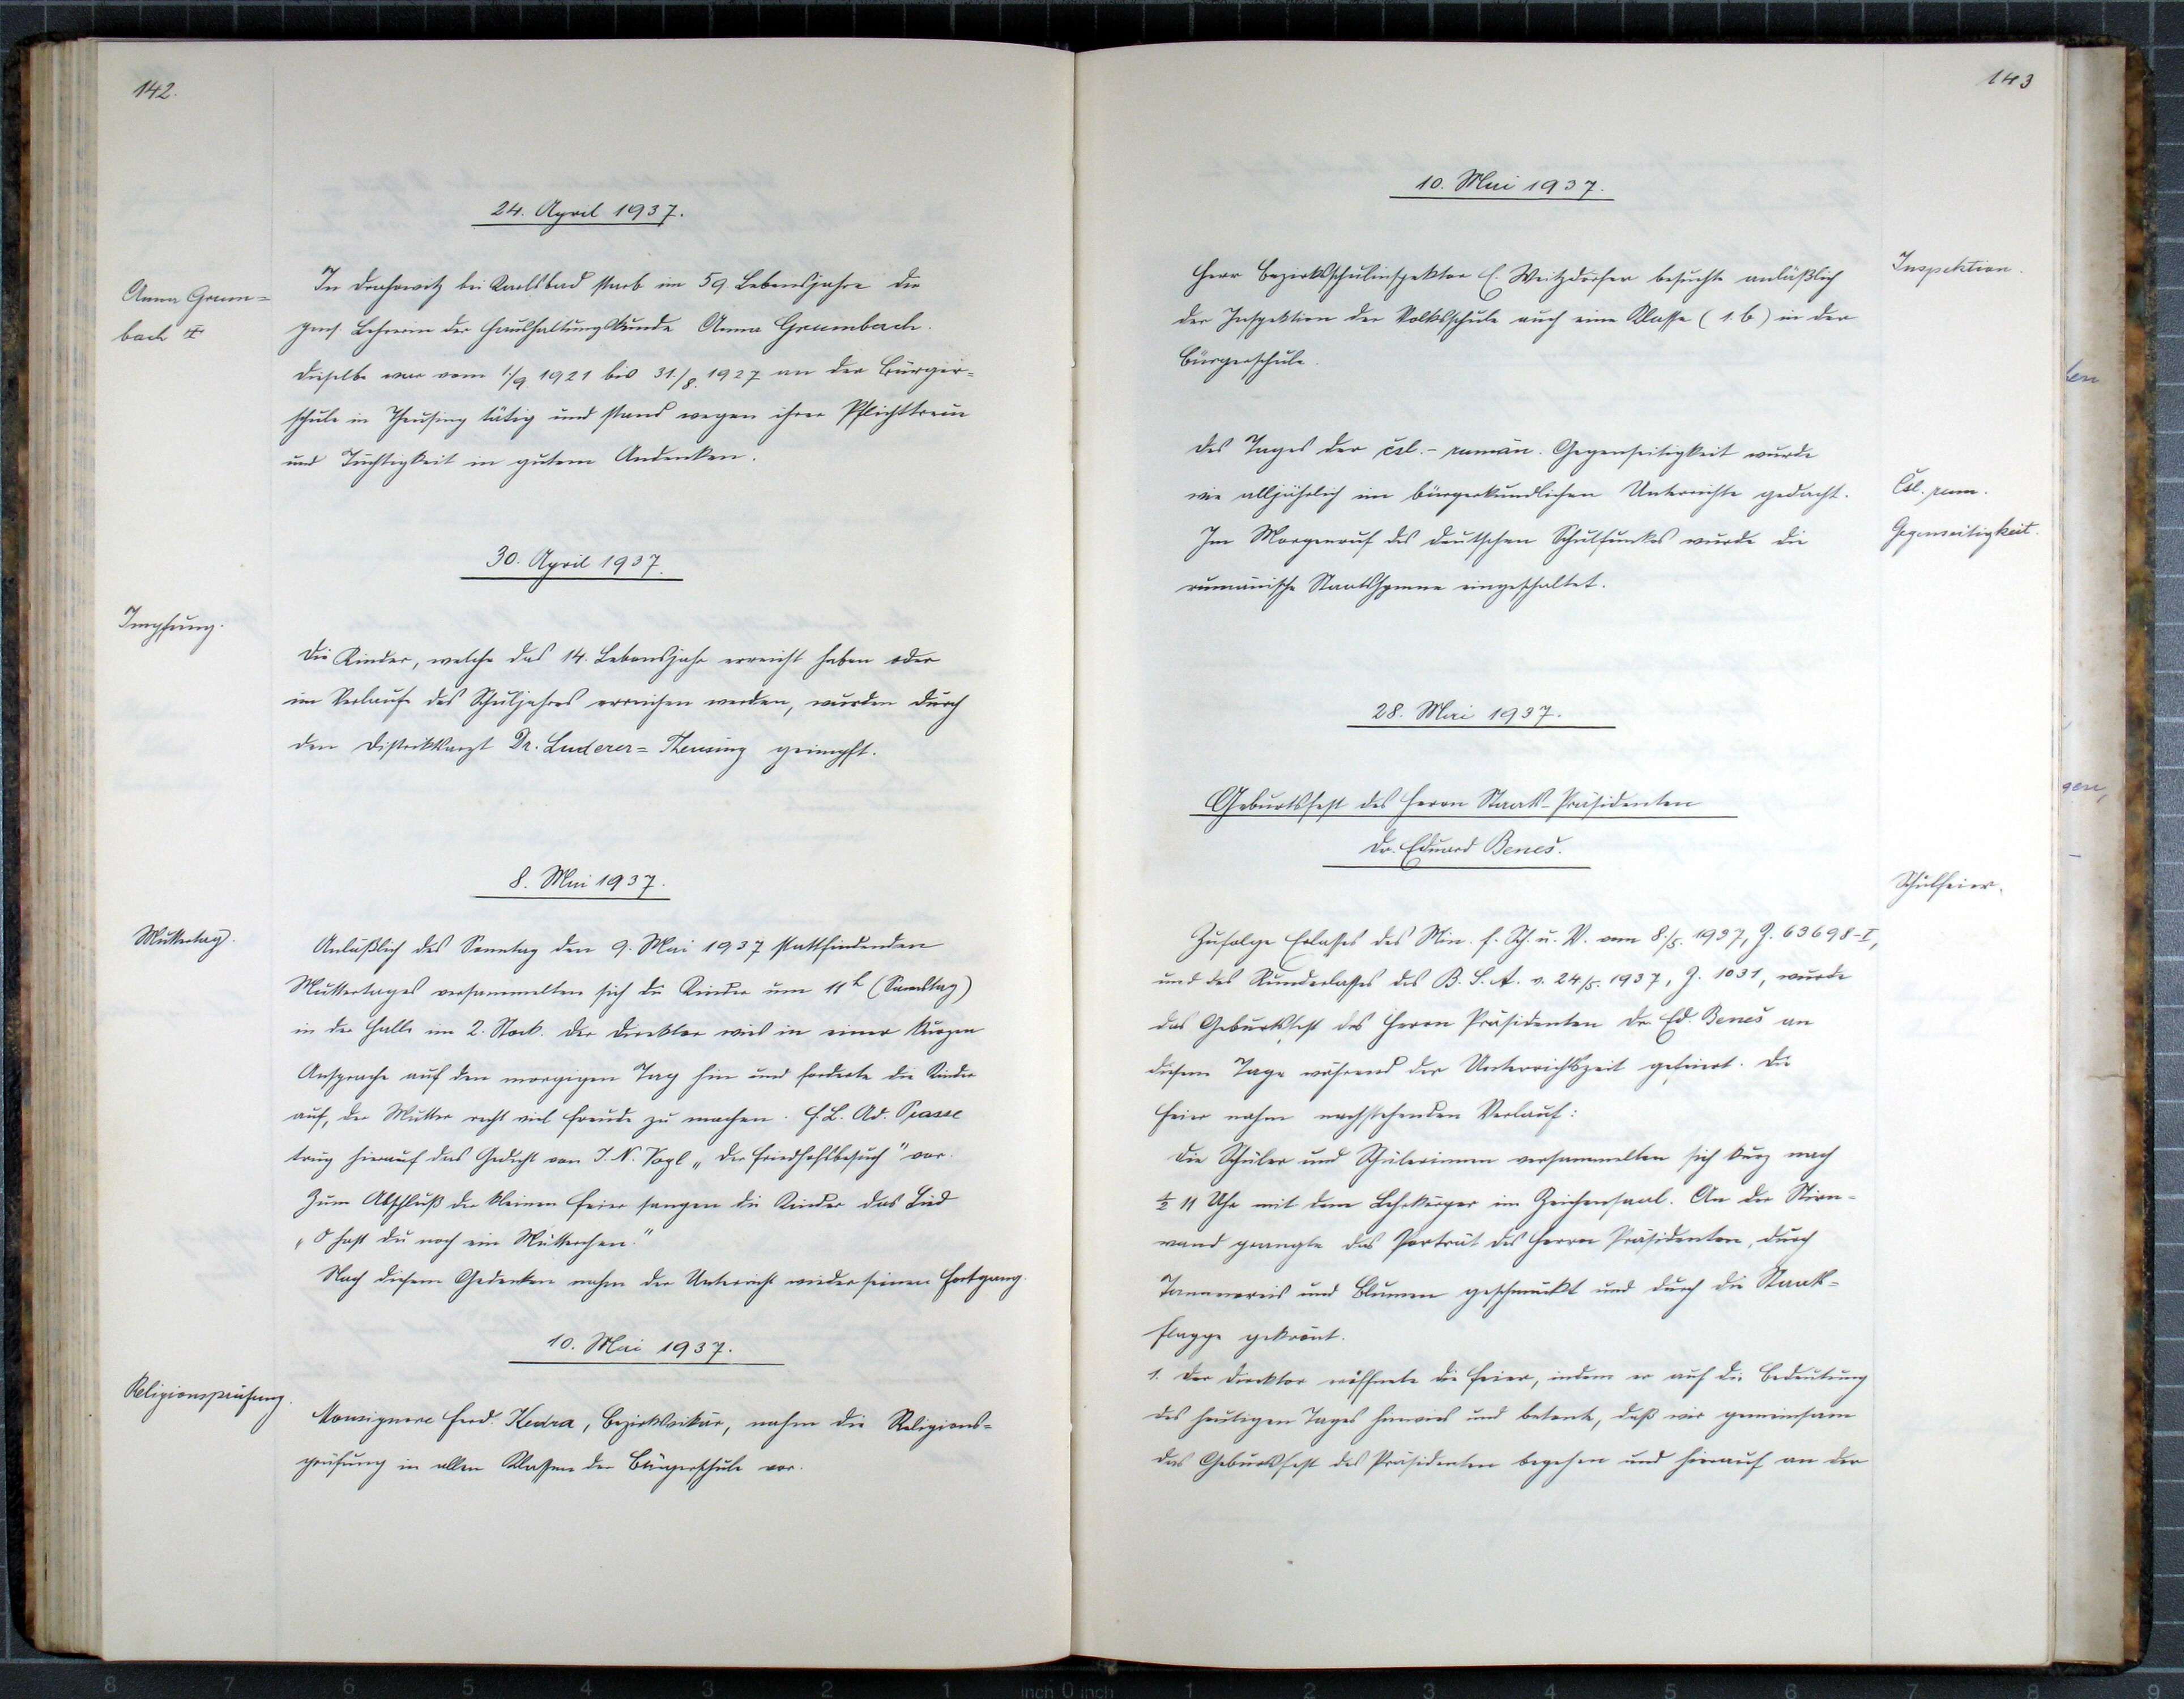 142.
24. April 1937.
Anna Grum=
bach ✝
In Drahowitz bei Karlsbad starb im 59 Lebensjahre die
gew. Lehrerin der Haushaltungskunde Anna Grumbach.
Dieselbe war vom 1./9 1921 bis 31./8. 1927 an der Bürger=
schule in Theusing tätig und stand wegen ihrer Pflichttreue
und Tüchtigkeit in gutem Andenken.
30. April 1937.
Impfung.
Die Kinder, welche das 14. Lebensjahr erreicht haben oder
im Verlaufe des Schuljahres erreichen werden, wurden durch
den Distriktsarzt Dr. Luderer=Theusing geimpft.
8. Mai 1937.
Muttertag.
Anläßlich des Sonntag den 9. Mai 1937 stattfindenden
Muttertages versammelten sich die Kinder um 11h (Samstag)
in der Halle im 2. Stock. Der Direktor wies in einer kurzen
Ansprache auf den morgigen Tag hin und forderte die Kinder
auf, der Mutter recht viel Freude zu machen. F. L. Ad. Passe
trug hierauf das Gedicht von J. N. Vogl „Der Friedhofsbesuch" vor.
Zum Abschluß der kleinen Feier sangen die Kinder das Lied
„O hast du noch ein Mütterchen."
Nach diesem Gedenken nahm der Unterricht wieder seinen Fortgang.
10. Mai 1937.
Religionsprüfung.
Monsignore Ferd. Kedra, Bezirksvikär, nahm die Religions=
prüfung in allen Klassen der Bürgerschule vor.
143
10. Mai 1937.
Inspektion.
Herr Bezirksschulinspektor E. Weitzdörfer besuchte anläßlich
der Inspektion der Volksschule auch eine Klasse (1. b) in der
Bürgerschule.
Čsl. rum.
Gegenseitigkeit.
Des Tages der čsl.-rumän. Gegenseitigkeit wurde
wie alljährlich im bürgerkundlichen Unterrichte gedacht.
Im Morgenruf des deutschen Schulfunkes wurde die
rumänische Staatshymne eingeschaltet.
28. Mai 1937.
Geburtsfest des Herrn Staats-Präsidenten
Dr. Eduard Beneš.
Schulfeier.
Zufolge Erlasses des Min. f. Sch. u. V. vom 8./5. 1937, Z. 63698-I,
und des Runderlasses des B. S. A. v. 24/5. 1937, Z. 1031, wurde
das Geburtsfest des Herrn Präsidenten Dr. Ed. Beneš an
diesem Tage während der Unterrichtszeit gefeiert. Die
Feier nahm nachstehenden Verlauf:
Die Schüler und Schülerinnen versammelten sich kurz nach
½ 11 Uhr mit dem Lehrkörper im Zeichensaal. An der Stirn-
wand prangte das Porträt des Herrn Präsidenten, durch
Tannenreis und Blumen geschmückt und durch die Staats=
flagge gekrönt.
1. Der Direktor eröffnete die Feier, indem er auf die Bedeutung
des heutigen Tages hinwies und betonte, daß wir gemeinsam
das Geburtsfest des Präsidenten begehen und hierauf an der